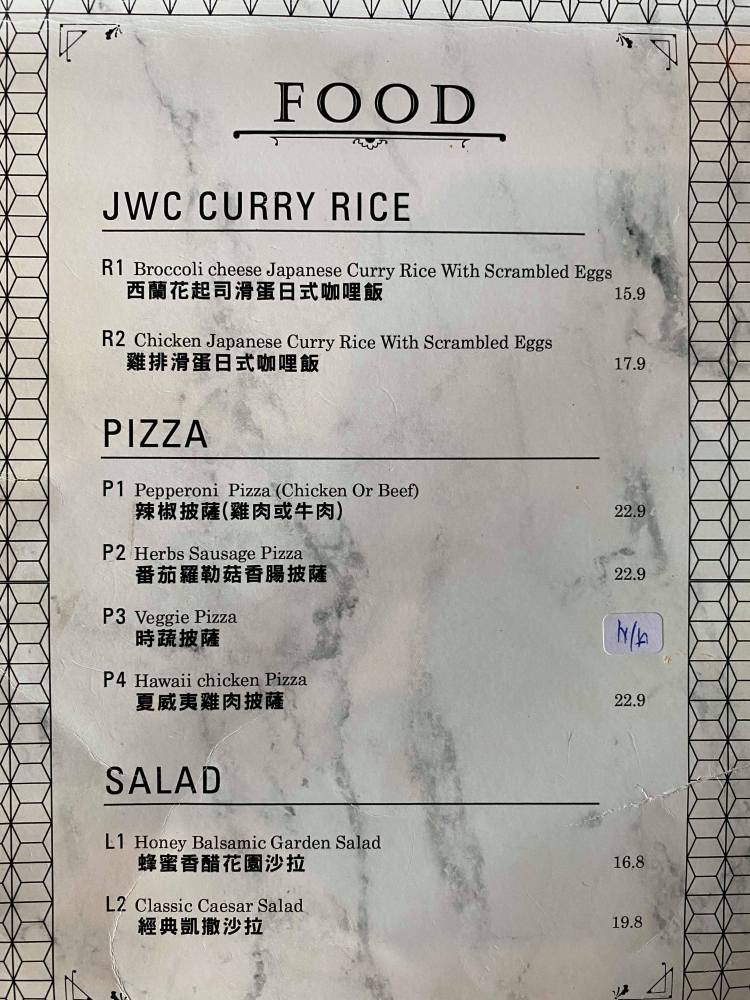 FOOD
JWC CURRY RICE
R1 Broccoli cheese Japanese Curry Rice With Scrambled Eggs
西蘭花起司滑蛋日式咖哩飯 15.9
R2 Chicken Japanese Curry Rice With Scrambled Eggs
雞排滑蛋日式咖哩飯 17.9
PIZZA
P1 Pepperoni Pizza (Chicken Or Beef)
辣椒披薩(雞肉或牛肉) 22.9
P2 Herbs Sausage Pizza
番茄羅勒菇香腸披薩 22.9
P3 Veggie Pizza
時蔬披薩 N/A
P4 Hawaii chicken Pizza
夏威夷雞肉披薩 22.9
SALAD
L1 Honey Balsamic Garden Salad
蜂蜜香醋花園沙拉 16.8
L2 Classic Caesar Salad
經典凱撒沙拉 19.8